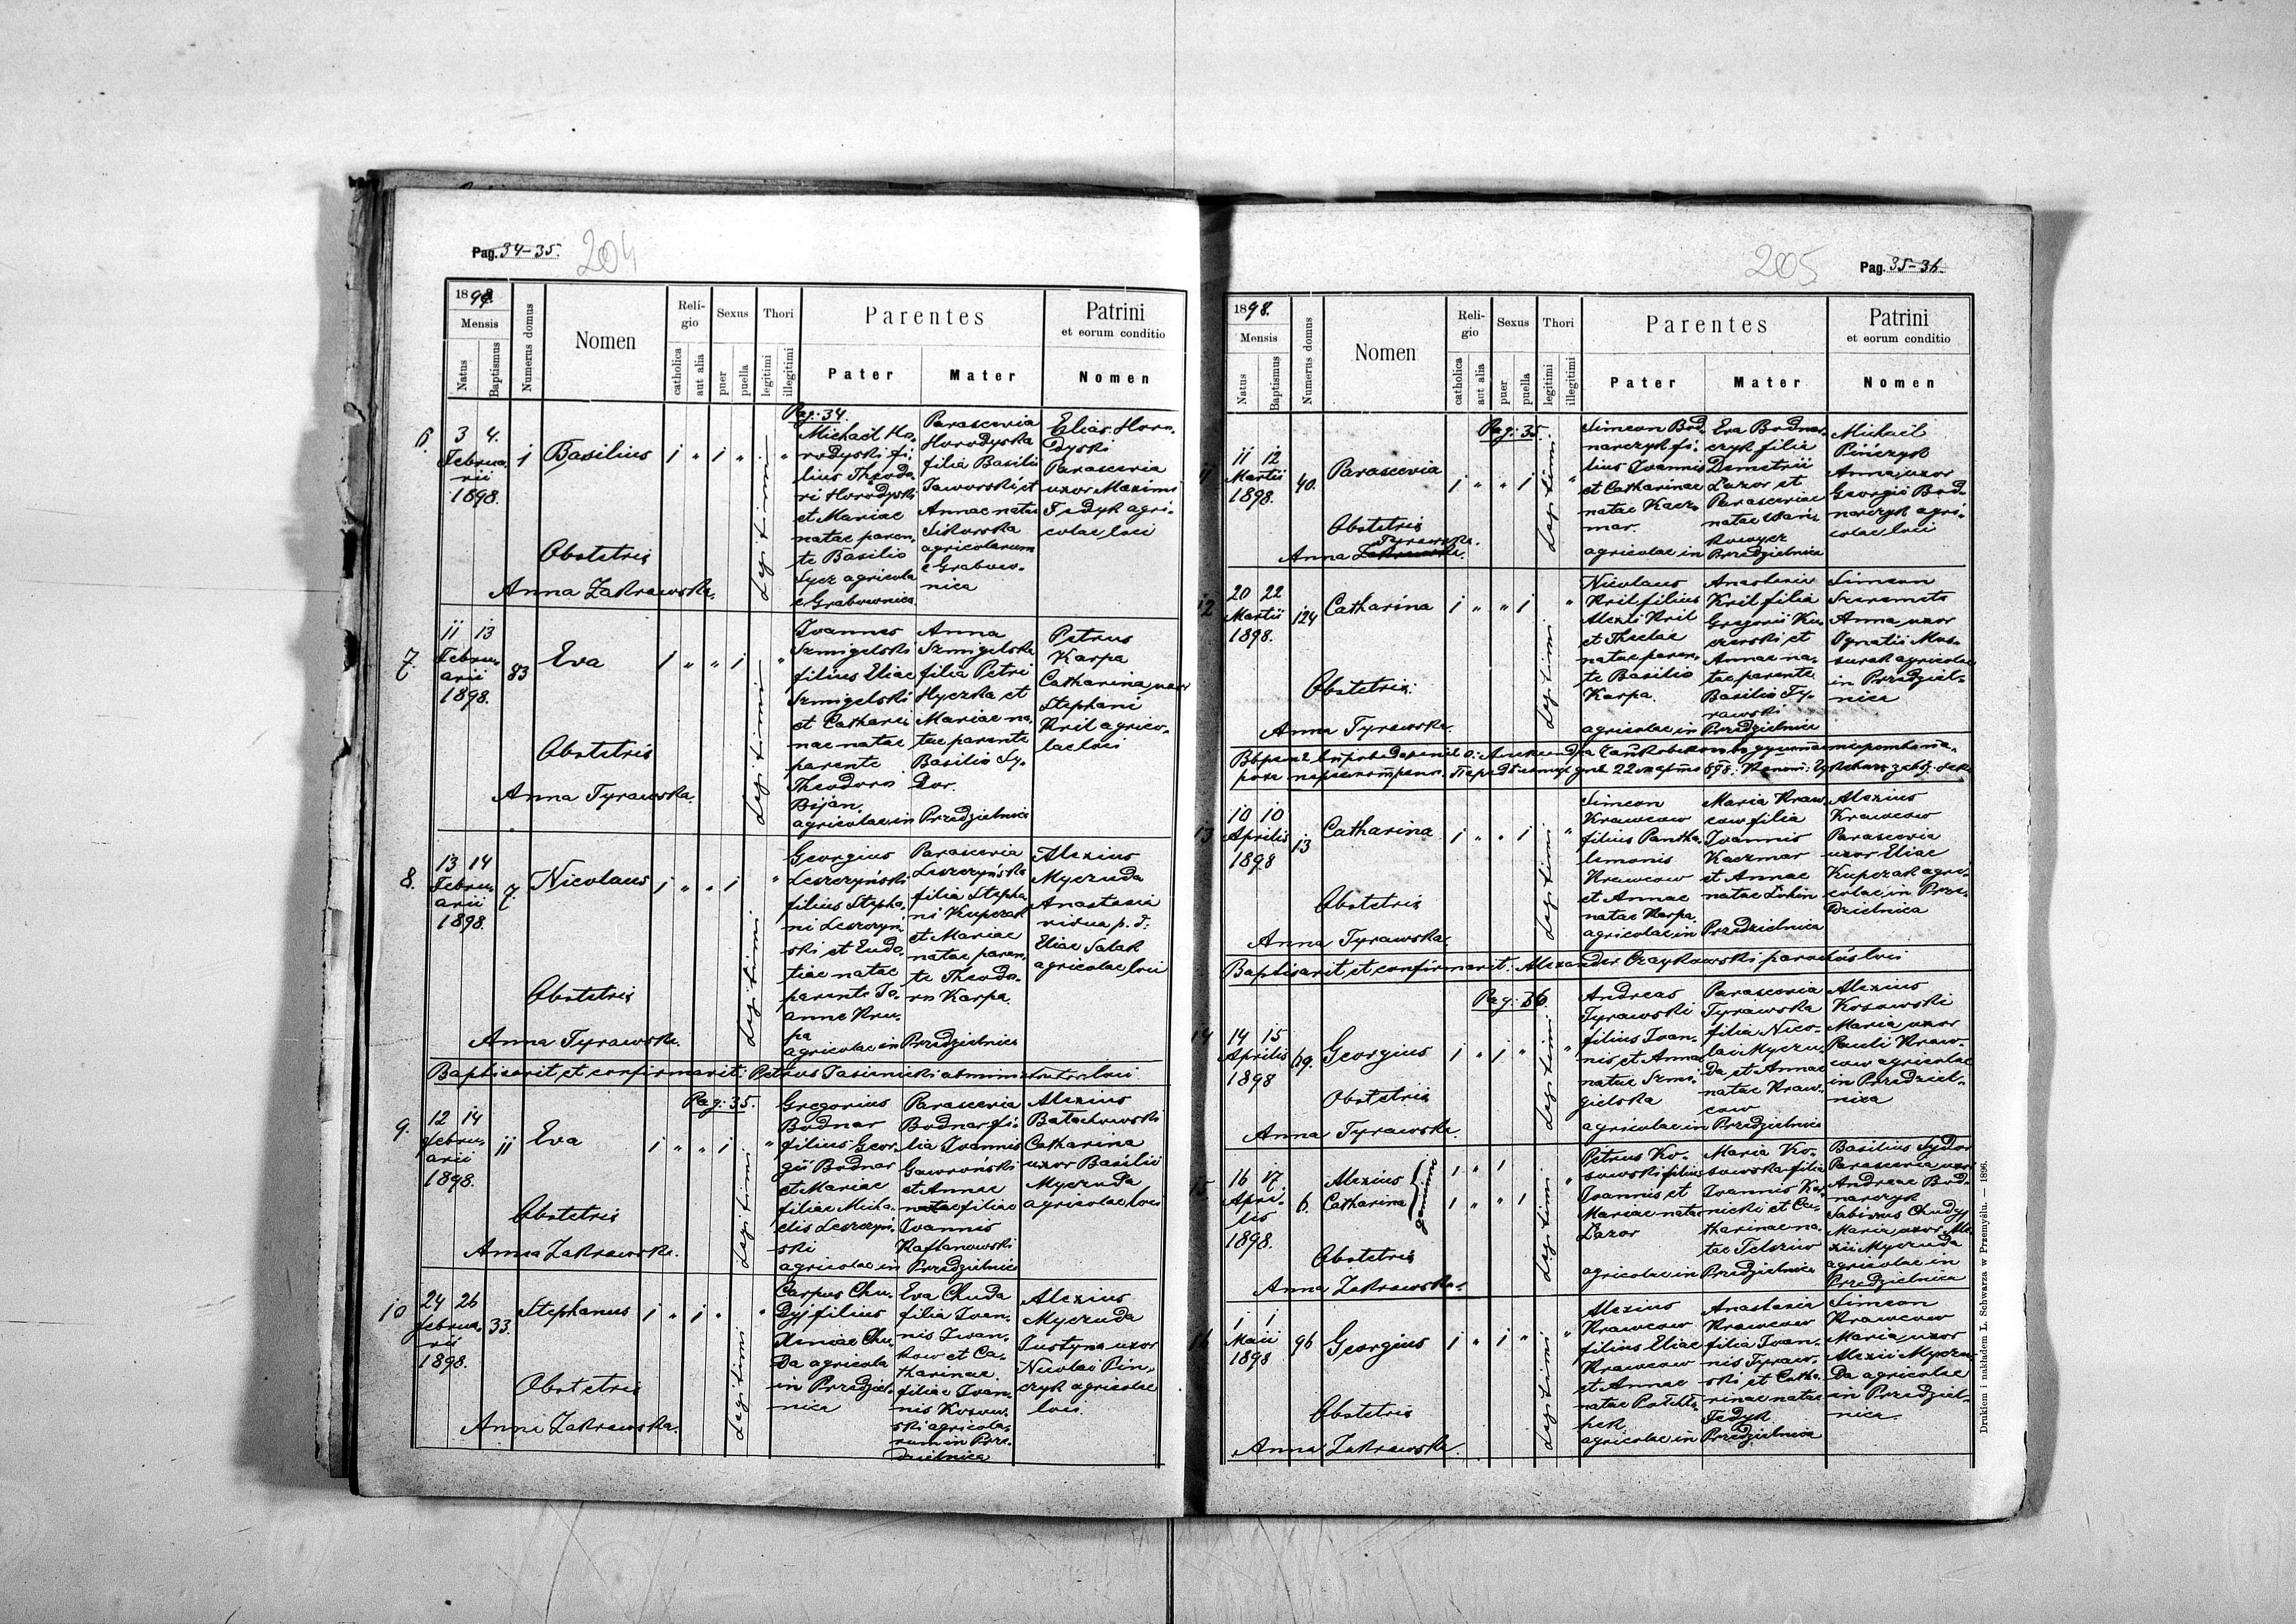 Pag. 34-35. 204
1898.
Mensis
Natus
Baptismus
Numerus domus
Nomen
Religio
catholica
aut alia
Sexus
puer
puella
Thori
legitimi
illegitimi
Parentes
Pater
Mater
Patrini
et eorum conditio
Nomen
Pag: 34.
6.
3 4.
Februa-
rii
1898.
1
Basilius
Obstetrix
Anna Zakrawska.
Legitimi
Michaël Ho-
rodyski fi-
lius Theodo-
ri Horodyski
et Mariae
natae paren-
te Basilio
Sycz agricola
e Grabownica
Parascevia
Horodyska
filia Basilii
Jaworski et
Annae natae
Sikorska
agricolarum
e Grabow-
nica
Elias Horo-
dyski
Parascevia
uxor Maximi
Fedyk agri-
colae loci
7.
11 13
Febru-
arii
1898.
83
Eva
Obstetrix
Anna Tyrawska.
Legitimi
Ioannes
Szmigelski
filius Eliae
Szmigelski
et Cathari-
nae natae
parente
Theodoro
Bijan.
agricolae in Przedzielnica
Anna
Szmigelska
filia Petri
Hyczka et
Mariae na-
tae parente
Basilio Sy-
dor.
Petrus
Karpa
Catharina uxor
Stephani
Kril agrico-
lae loci
8.
13 14
Febru-
arii
1898.
7.
Nicolaus
Obstetrix
Anna Tyrawska.
Legitimi
Georgius
Leszczyński
filius Stepha-
ni Leszczyń-
ski et Eudo-
tiae natae
parente Jo-
anne Kru-
pa
agricolae in Przedzielnica
Parascevia
Leszczyńska
filia Stepha-
ni Kupczak
et Mariae
natae paren-
te Theodo-
ro Karpa.
Alexius
Myczuda
Anastasia
vidua p. d:
Eliae Salak
agricolae loci
Baptisavit et confirmavit: Petrus Jasienicki administrator loci
Pag: 35.
9.
12 14
Febru-
arii
1898.
11
Eva
Obstetrix
Anna Zakrawska.
Legitimi
Gregorius
Bodnar
filius Geor-
gii Bodnar
et Mariae
filiae Micha-
elis Leszczyń-
ski
agricolae in Przedzielnica
Parascevia
Bodnar fi-
lia Ioannis
Gawroński
et Annae
natae filiae
Ioannis
Kaftanowski
Alexius
Batachowski
Catharina
uxor Basilii
Myczuda
agricolae loci
10
24 26
Februa-
rii
1898.
33.
Stephanus
Obstetrix
Anna Zakrawska.
Legitimi
Carpus Chu-
dyj filius
Xeniae Chu-
da agricola
in Przedziel-
nica
Eva Chuda
filia Ioan-
nis Iwan-
kow et Ca-
tharinae
filiae Ioan-
nis Kosow-
ski agricola-
rum in Prze-
dzielnica
Alexius
Myczuda
Justyna uxor
Nicolai Pin-
czyk agricolae
loci
205 Pag. 35-36.
1898.
Mensis
Natus
Baptismus
Numerus domus
Nomen
Religio
catholica
aut alia
Sexus
puer
puella
Thori
legitimi
illegitimi
Parentes
Pater
Mater
Patrini
et eorum conditio
Nomen
Pag: 35
11
11 12
Martii
1898.
40.
Parascevia
Obstetrix
Tyrawska.
Anna Zakrawska.
Legitimi
Simeon Bod-
narczyk fi-
lius Ioannis
et Catharinae
natae Kacz-
mar.
agricolae in Przedzielnica
Eva Bodnar-
czyk filia
Demetrii
Lazor et
Parasceviae
natae
Michaël
Pińczyk
Anna uxor
Georgii Bod-
narczyk agri-
colae loci
12
20 22
Martii
1898.
124
Catharina
Obstetrix.
Anna Tyrawska.
Legitimi
Nicolaus
Kril filius
Alexii Kril
et Theclae
natae paren-
te Basilio
Karpa.
agricolae in Przedzielnica
Anastasia
Kril filia
Gregorii
et
Annae na-
tae parente
Basilio Ty-
rawski
Simeon
Szeremeta
Anna uxor
Ignatii
agricolae
in Przedziel-
nica
13
10 10
Aprilis
1898
13
Catharina
Obstetrix
Anna Tyrawska.
Legitimi
Simeon
Krawcow
filius Panta-
lemonis
Krawcow
et Annae
natae Karpa.
agricolae in Przedzielnica
Maria Kraw-
cow filia
Ioannis
Kaczmar
et Annae
natae
Alexius
Krawcow
Parascevia
uxor Eliae
Kupczak agri-
colae in Prze-
dzielnica
Baptisavit et confirmavit: Alexander Czaykowski parochus loci
Pag: 36.
14
14 15
Aprilis
1898
69.
Georgius
Obstetrix
Anna Tyrawska.
Legitimi
Andreas
Tyrawski
filius Ioan-
nis et Annae
natae Szmi-
gielska
agricolae in Przedzielnica
Parascevia
Tyrawska
filia Nico-
lai Myczu-
da et Annae
natae Kraw-
cow
Alexius
Kosowski
Maria uxor
Pauli Kraw-
cow agricolae
in Przedziel-
nica
15
16 17
Apri-
lis
1898.
6.
Alexius
Catharina
gemini
Obstetrix
Anna Zakrawska.
Legitimi
Petrus Ko-
sowski filius
Ioannis et
Mariae natae
Lazor
agricolae in Przedzielnica
Maria Ko-
sowska filia
Ioannis
et Ca-
tharinae na-
tae
Basilius Sydor
Parascevia uxor
Andreae Bod-
narczyk
Sabinus Chudyj
Maria uxor Ale-
xii Myczuda
agricolae in
Przedzielnica
16
1 1
Maii
1898
96
Georgius
Obstetrix
Anna Zakrawska.
Legitimi
Alexius
Krawcow
filius Eliae
Krawcow
et Annae
natae
agricolae in Przedzielnica
Anastasia
Krawcow
filia Ioan-
nis Tyraw-
ski et Catha-
rinae natae
Fedyk
Simeon
Krawcow
Maria uxor
Alexii Myczu-
da agricolae
in Przedziel-
nica
Drukiem i nakładem L. Schwarza w Przemyślu. — 1896.